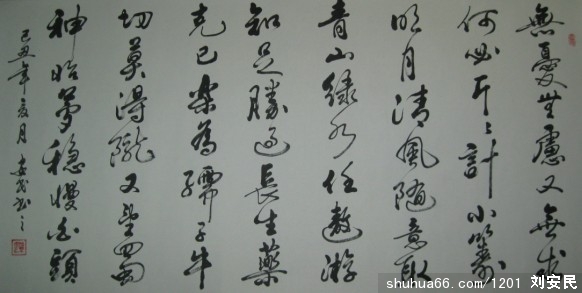 無憂無慮又無求
何必斤斤計小籌
明月清風隨意取
青山綠水任遨游
知足勝過長生藥
克己樂為孺子牛
切莫得隴又望蜀
神怡夢穩慢白頭
己丑年夏月安民书之
shuhua66.com/1201 刘安民